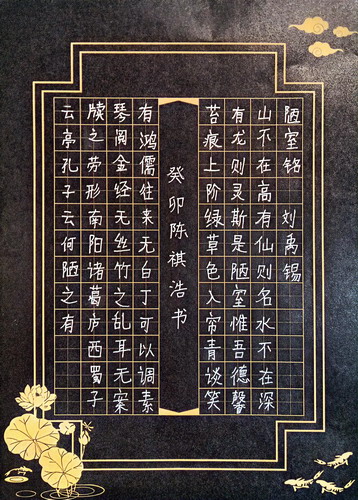 陋室铭 刘禹锡
山不在高有仙则名水不在深
有龙则灵斯是陋室惟吾德馨
苔痕上阶绿草色入帘青谈笑
癸卯陈祺浩书
有鸿儒往来无白丁可以调素
琴阅金经无丝竹之乱耳无案
牍之劳形南阳诸葛庐西蜀子
云亭孔子云何陋之有